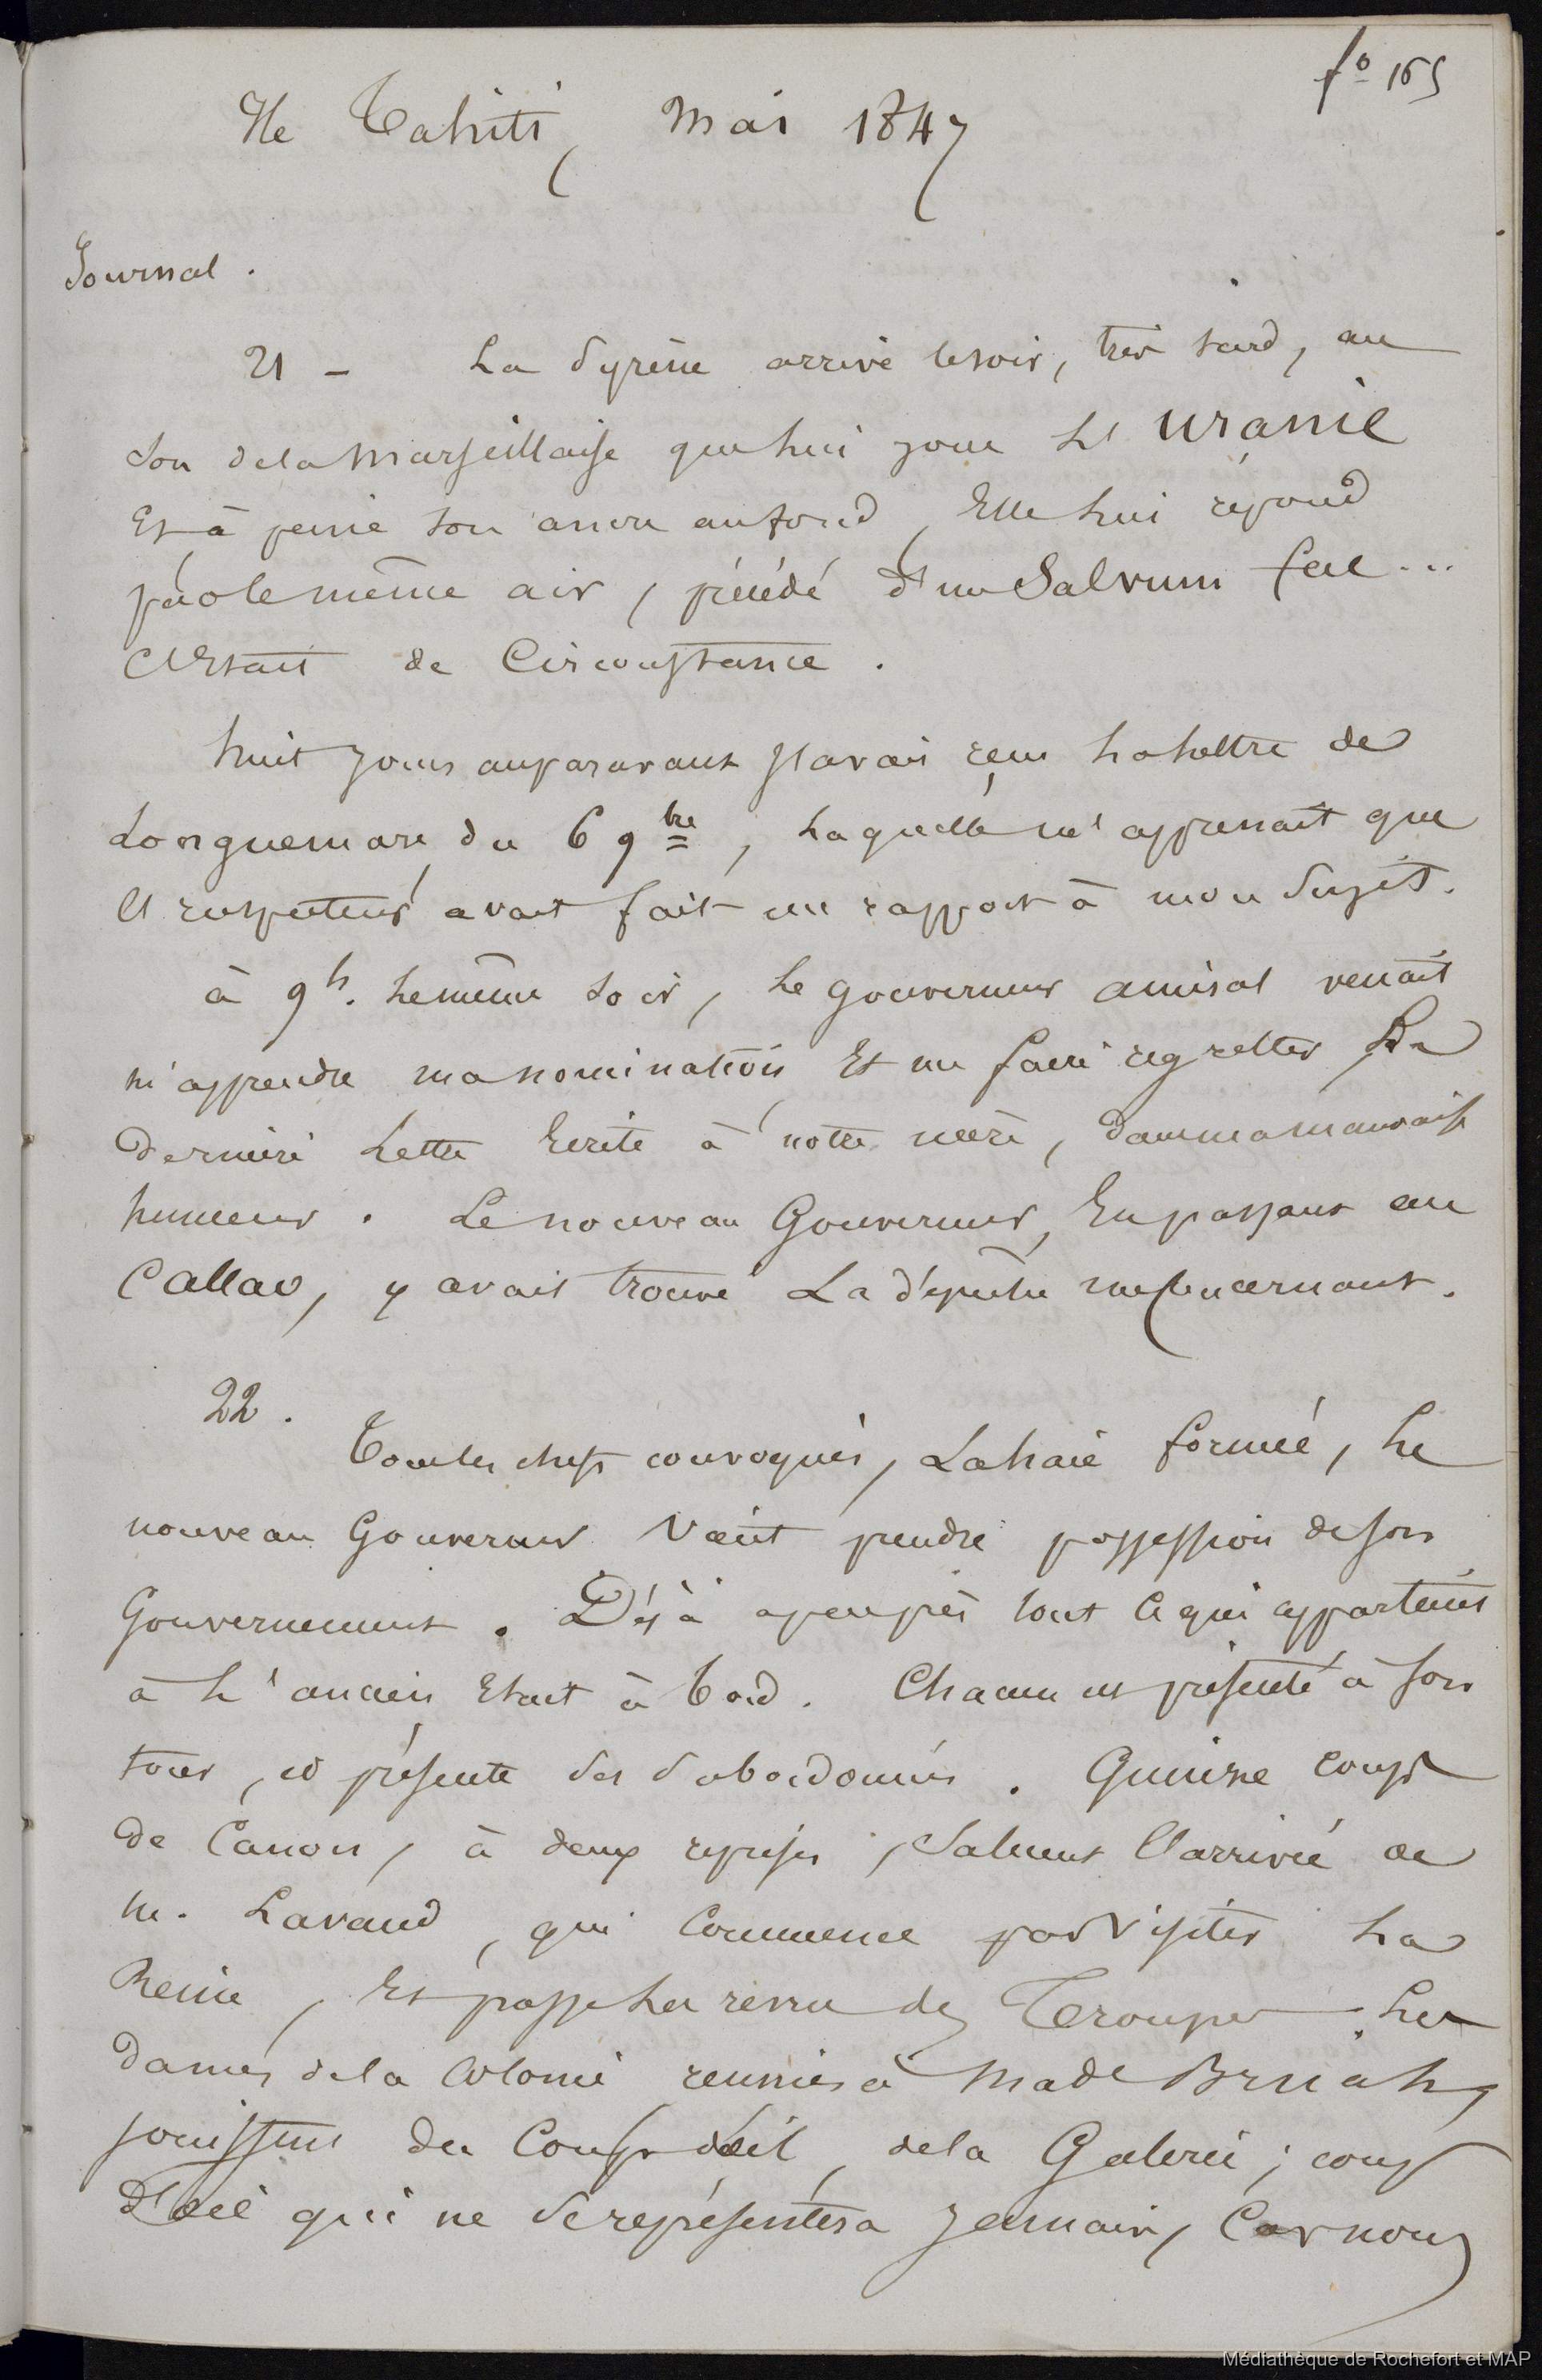 fo 165
Ile Tahiti, Mai 1847
Journal.
21 - La Syrène arrive le soir, très tard, au
son de la Marseillaise que lui joue L'Uranie
Et à peine son ancre au fond, Elle lui répond
par le même air, précédé d'un Salvum fac ...
C'Etait de Circonstance.
huit jours auparavant j'avais reçu la lettre de
Longuemare, du 6 9bre, laquelle m'apprenait que
l'inspecteur avait fait un rapport à mon Sujet.
à 9h. le même soir, le gouverneur amiral venait
m'apprendre ma nomination Et me faire regretter la
dernière lettre Ecrite à notre mère, dans ma mauvaise
humeur. Le nouveau Gouverneur, En passant au
Callao, y avait trouvé La dépêche me Concernant.
22.
Tous les chefs convoqués, La haie formée, le
nouveau Gouverneur Vient prendre possession de son
Gouvernement. Déjà apeuprès tout ce qui appartenait
à l'ancien Etait à bord. Chacun est présenté à son
tour, et présente ses Subordonnés. Quinze coups
de Canon, à deux reprises, Saluent l'arrivée de
M. Lavaud, qui Commence par Visiter la
Reine, Et passe la revue des Troupes. Les
dames de la Colonie reunies à Made Bruat,
jouissent du Coup d'œil de la Galerie; coup
d'œil qui ne se représentera jamais, Car nous
Médiathèque de Rochefort et MAP